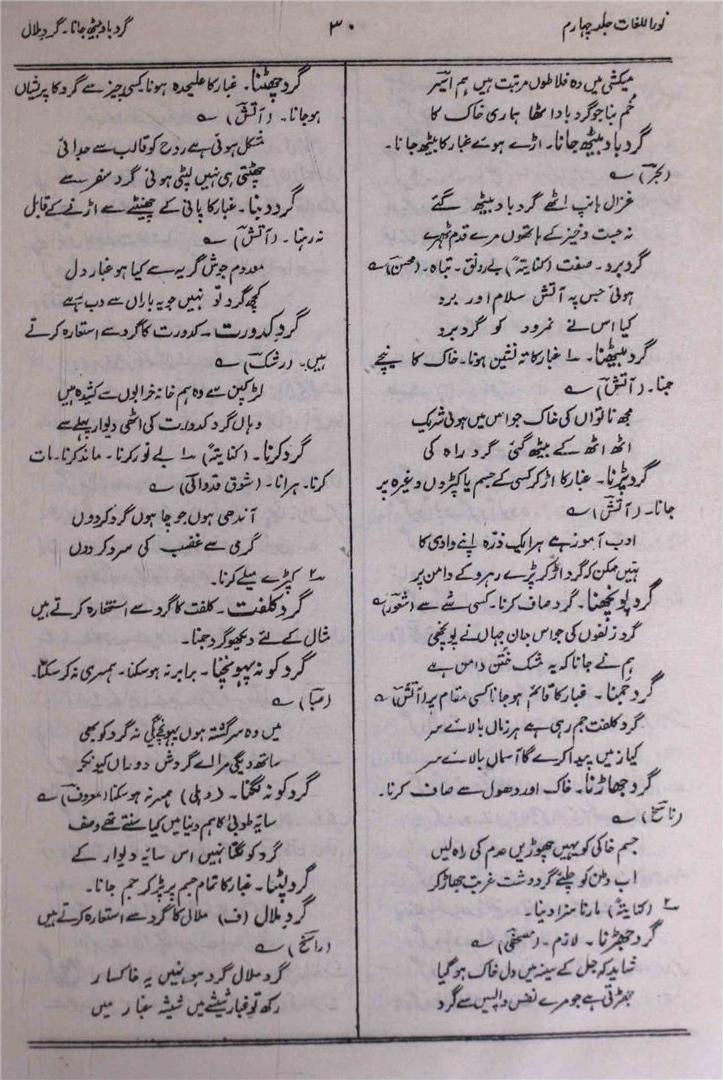 نور اللغات جلد چہارم
۳۰
گرد باد بیٹھ جانا۔ گرد ملال
میکشی میں وہ فلاطوں مرتبت ہیں ہم اسیر
خُم بنا جو گرد باد اٹھا ہماری خاک کا
گرد باد بیٹھ جانا۔ اڑے ہوئے غبار کا بیٹھ جانا۔
(بحر) ؎
غزال ہانپ اٹھے گرد باد بیٹھ گئے
نہ جست و خیز کے ہاتھوں مرے قدم ٹھہرے
گرد برد۔ صفت (کنایتہً) بے رونق۔ تباہ۔ (محسن) ؎
ہوئی جس پہ آتش سلام اور برد
کیا اس نے نمرود کو گرد برد
گرد بیٹھنا۔ ۱۔ غبار کا تہ نشین ہونا۔ خاک کا نیچے
جمنا۔ (آتش) ؎
مجھ ناتواں کی خاک جو اس میں ہوئی شریک
اٹھ اٹھ کے بیٹھ گئی گرد راہ کی
گرد پڑنا۔ غبار کا اڑ کر کسی کے جسم یا کپڑوں وغیرہ پر
جانا۔ (آتش) ؎
ادب آموز ہے ہر ایک ذرّہ اپنے وادی کا
نہیں ممکن کہ گرد اڑ کر پڑے رہرو کے دامن پر
گرد پونچھنا۔ گرد صاف کرنا۔ کسی شے سے (شعور) ؎
گرد زلفوں کی جو اس جان جہاں نے پونچھی
ہم نے جانا کہ یہ مشک ختن دامن ہے
گرد جمنا۔ غبار کا قائم ہو جانا کسی مقام پر (آتش) ؎
گرد کلفت جم رہی ہے ہر زماں بالائے سر
کیا زمیں پیدا کرے گا آسماں بالائے سر
گرد جھاڑنا۔ خاک اور دھول سے صاف کرنا۔
(ناسخ) ؎
جسم خاکی کو یہیں چھوڑیں عدم کی راہ لیں
اب وطن کو چلئے گرد دشت غربت جھاڑ کر
۲۔ (کنایتہً) مارنا سزا دینا۔
گرد جھڑنا۔ لازم۔ (مصحفی) ؎
شاید کہ جل کے سینہ میں دل خاک ہو گیا
جھڑتی ہے جو مرے نفس واپسیں سے گرد
گرد چھٹنا۔ غبار کا علیحدہ ہونا کسی چیز سے گرد کا پریشاں
ہو جانا۔ (آتش) ؎
مشکل ہوئی ہے روح کو قالب سے جدائی
چھٹتی ہی نہیں لپٹی ہوئی گرد سفر سے
گرد دبنا۔ غبار کا پانی کے چھینٹے سے اڑنے کے قابل
نہ رہنا۔ (آتش) ؎
معدوم جوش گریہ سے کیا ہو غبار دل
کچھ گرد تو نہیں جو یہ باراں سے دب ہے
گردِ کدورت۔ کدورت کا گرد سے استعارہ کرتے
ہیں۔ (رشک) ؎
لڑکپن سے وہ ہم خانہ خرابوں سے کشیدہ ہیں
وہاں گرد کدورت کی اٹھی دیوار پہلے سے
گرد کرنا۔ (کنایتہً) ۱۔ بے نور کرنا۔ ماند کرنا۔ مات
کرنا۔ ہرانا۔ (شوق قدوائی) ؎
آندھی ہوں جو چاہوں گرد کر دوں
گرمی سے غضب کی سرد کر دوں
۲۔ کپڑے میلے کرنا۔
گردِ کلفت۔ کلفت کا گرد سے استعارہ کرتے ہیں
مثال کے لئے دیکھو گرد جمنا۔
گرد کو نہ پہونچنا۔ برابر نہ ہو سکنا۔ ہمسری نہ کر سکنا۔
(صبا) ؎
میں وہ سرگشتہ ہوں پہونچیگی نہ گرد کو بھی
ساتھ دیگی مرا اے گردش دوراں کیونکر
گرد کو نہ لگنا۔ (دہلی) ہمسر نہ ہو سکنا (معروف) ؎
سایۂ طوبیٰ کا ہم دنیا میں کیا سنتے تھے وصف
گرد کو لگتا نہیں اس سایۂ دیوار کے
گرد لپٹنا۔ غبار کا تمام جسم پر پڑ کر جم جانا۔
گردِ ملال (ف) ملال کا گرد سے استعارہ کرتے ہیں
(راسخ) ؎
گرد ملال گرد ہو نہیں یہ خاکسار
رکھ تو غبار شیشے میں شیشہ غبار میں